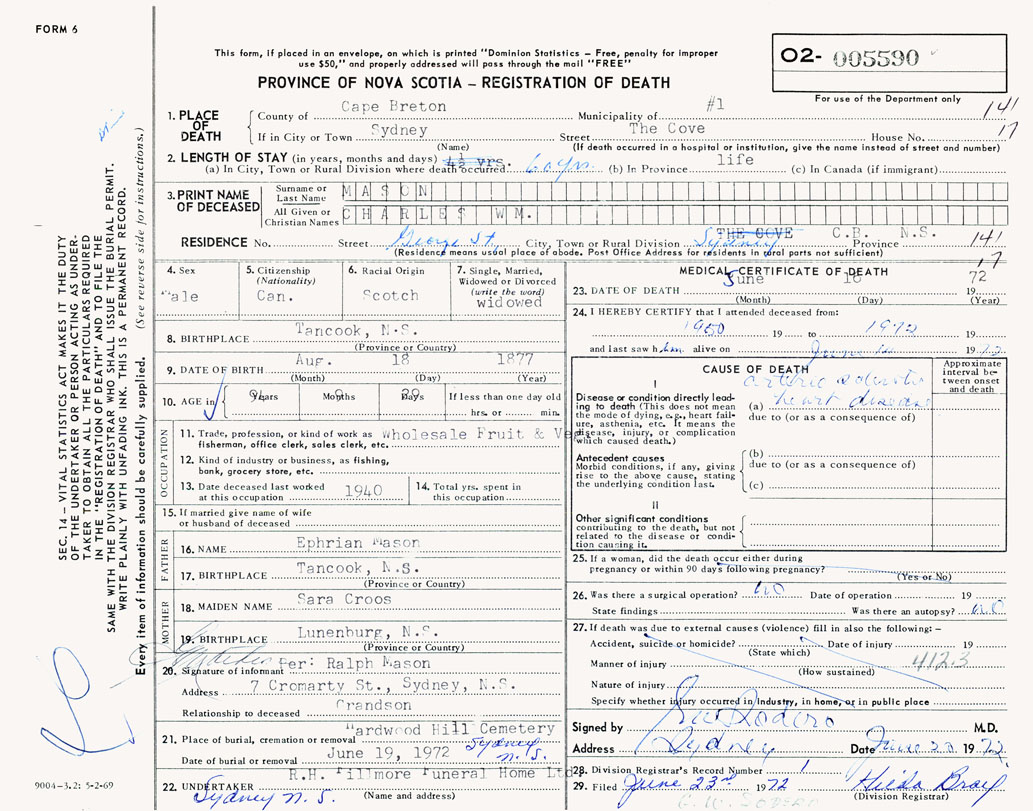 FORM 6
This form, if placed in an envelope, on which is printed "Dominion Statistics – Free, penalty for improper
use $50," and properly addressed will pass through the mail "FREE"
PROVINCE OF NOVA SCOTIA – REGISTRATION OF DEATH
O2- 005590
For use of the Department only
1. PLACE OF DEATH
County of Cape Breton Municipality of #1 141
If in City or Town Sydney Street The Cove House No. 17
(Name) (If death occurred in a hospital or institution, give the name instead of street and number)
2. LENGTH OF STAY (in years, months and days) 4½ yrs.
(a) In City, Town or Rural Division where death occurred 60 yrs. (b) In Province life (c) In Canada (if immigrant)
3. PRINT NAME OF DECEASED
Surname or Last Name MASON
All Given or Christian Names CHARLES WM.
RESIDENCE No. Street George St. City, Town or Rural Division THE COVE Sydney C.B. N.S. Province 141
(Residence means usual place of abode. Post Office Address for residents in rural parts not sufficient) 17
4. Sex
ale
5. Citizenship
(Nationality)
Can.
6. Racial Origin
Scotch
7. Single, Married,
Widowed or Divorced
(write the word)
widowed
8. BIRTHPLACE Tancook, N.S.
(Province or Country)
9. DATE OF BIRTH Aug. 18 1877
(Month) (Day) (Year)
10. AGE in 94 Years Months Days If less than one day old
hrs. or min.
OCCUPATION
11. Trade, profession, or kind of work as Wholesale Fruit & Ve
fisherman, office clerk, sales clerk, etc.
12. Kind of industry or business, as fishing,
bank, grocery store, etc.
13. Date deceased last worked
at this occupation 1940
14. Total yrs. spent in
this occupation
15. If married give name of wife
or husband of deceased
FATHER
16. NAME Ephrian Mason
17. BIRTHPLACE Tancook, N.S.
(Province or Country)
MOTHER
18. MAIDEN NAME Sara Croos
19. BIRTHPLACE Lunenburg, N.S.
(Province or Country)
20. Signature of informant Per: Ralph Mason
Address 7 Cromarty St., Sydney, N.S.
Relationship to deceased Grandson
21. Place of burial, cremation or removal Hardwood Hill Cemetery
Sydney N.S.
Date of burial or removal June 19, 1972
R.H. Fillmore Funeral Home Ltd.
22. UNDERTAKER Sydney N.S.
(Name and address)
MEDICAL CERTIFICATE OF DEATH
23. DATE OF DEATH June 18 1972
(Month) (Day) (Year)
24. I HEREBY CERTIFY that I attended deceased from:
1950 19 to 1972 19
and last saw him alive on June 1972
CAUSE OF DEATH
Approximate interval between onset and death
I
Disease or condition directly leading to death (This does not mean the mode of dying, e.g., heart failure, asthenia, etc. It means the disease, injury, or complication which caused death.)
(a) heart disease
due to (or as a consequence of)
Antecedent causes
Morbid conditions, if any, giving rise to the above cause, stating the underlying condition last.
(b)
due to (or as a consequence of)
(c)
II
Other significant conditions
contributing to the death, but not related to the disease or condition causing it.
25. If a woman, did the death occur either during
pregnancy or within 90 days following pregnancy?
(Yes or No)
26. Was there a surgical operation? no Date of operation 19
State findings Was there an autopsy? no
27. If death was due to external causes (violence) fill in also the following: –
Accident, suicide or homicide? Date of injury 19
(State which)
Manner of injury 412.3
(How sustained)
Nature of injury
Specify whether injury occurred in Industry, in home, or in public place
Signed by M.D.
Address Sydney Date June 23 1972
28. Division Registrar's Record Number 1
29. Filed June 23rd 1972 Hilda Bray
(Division Registrar)
SEC. 14 – VITAL STATISTICS ACT MAKES IT THE DUTY
OF THE UNDERTAKER OR PERSON ACTING AS UNDER-
TAKER TO OBTAIN ALL THE PARTICULARS REQUIRED
IN THE "REGISTRATION OF DEATH" AND TO FILE THE
SAME WITH THE DIVISION REGISTRAR WHO SHALL ISSUE THE BURIAL PERMIT.
WRITE PLAINLY WITH UNFADING INK. THIS IS A PERMANENT RECORD.
Every item of information should be carefully supplied. (See reverse side for instructions.)
9004–3.2: 5-2-69